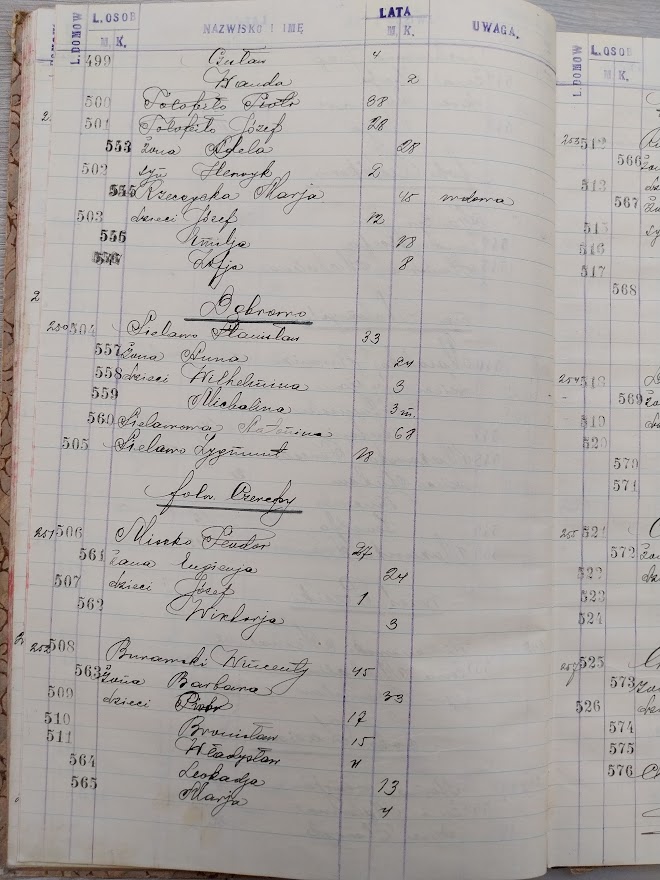 L. DOMÓW L. OSOB NAZWISKO I IMIĘ LATA UWAGA.
M. K. M. K.
499 4
Wanda 2
500 Piotr 38
501 Józef 28
553 żona Adela 28
502 syn Henryk 2
Rzeczycka Marja 45 wdowa
503 dzieci Józef 12
Emilja
Zofja 8
2
Dąbrowo
250 504 Sielawo Stanisław 33
557 żona Anna 24
558 dzieci Wilhelmina 3
559 Michalina 3 m.
560 Sielawowa 62
505 Sielawo Zygmunt
folw.
251 506 Miszko 27
561 żona Eugienja 24
507 dzieci Józef 1
562 Wiktorja 3
252 508 Burawski Wincenty 45
563 żona Barbara 33
509 dzieci Piotr 17
510 Bronisław 15
511 Władysław
564 Leokadja 13
565 Marja 4
L. DOMÓW L. OSOB
M. K.
253 512
566
513
567
515
516
517
568
254 518
569
519
520
570
571
255 521
572
522
523
524
257 525
573
526
574
575
576